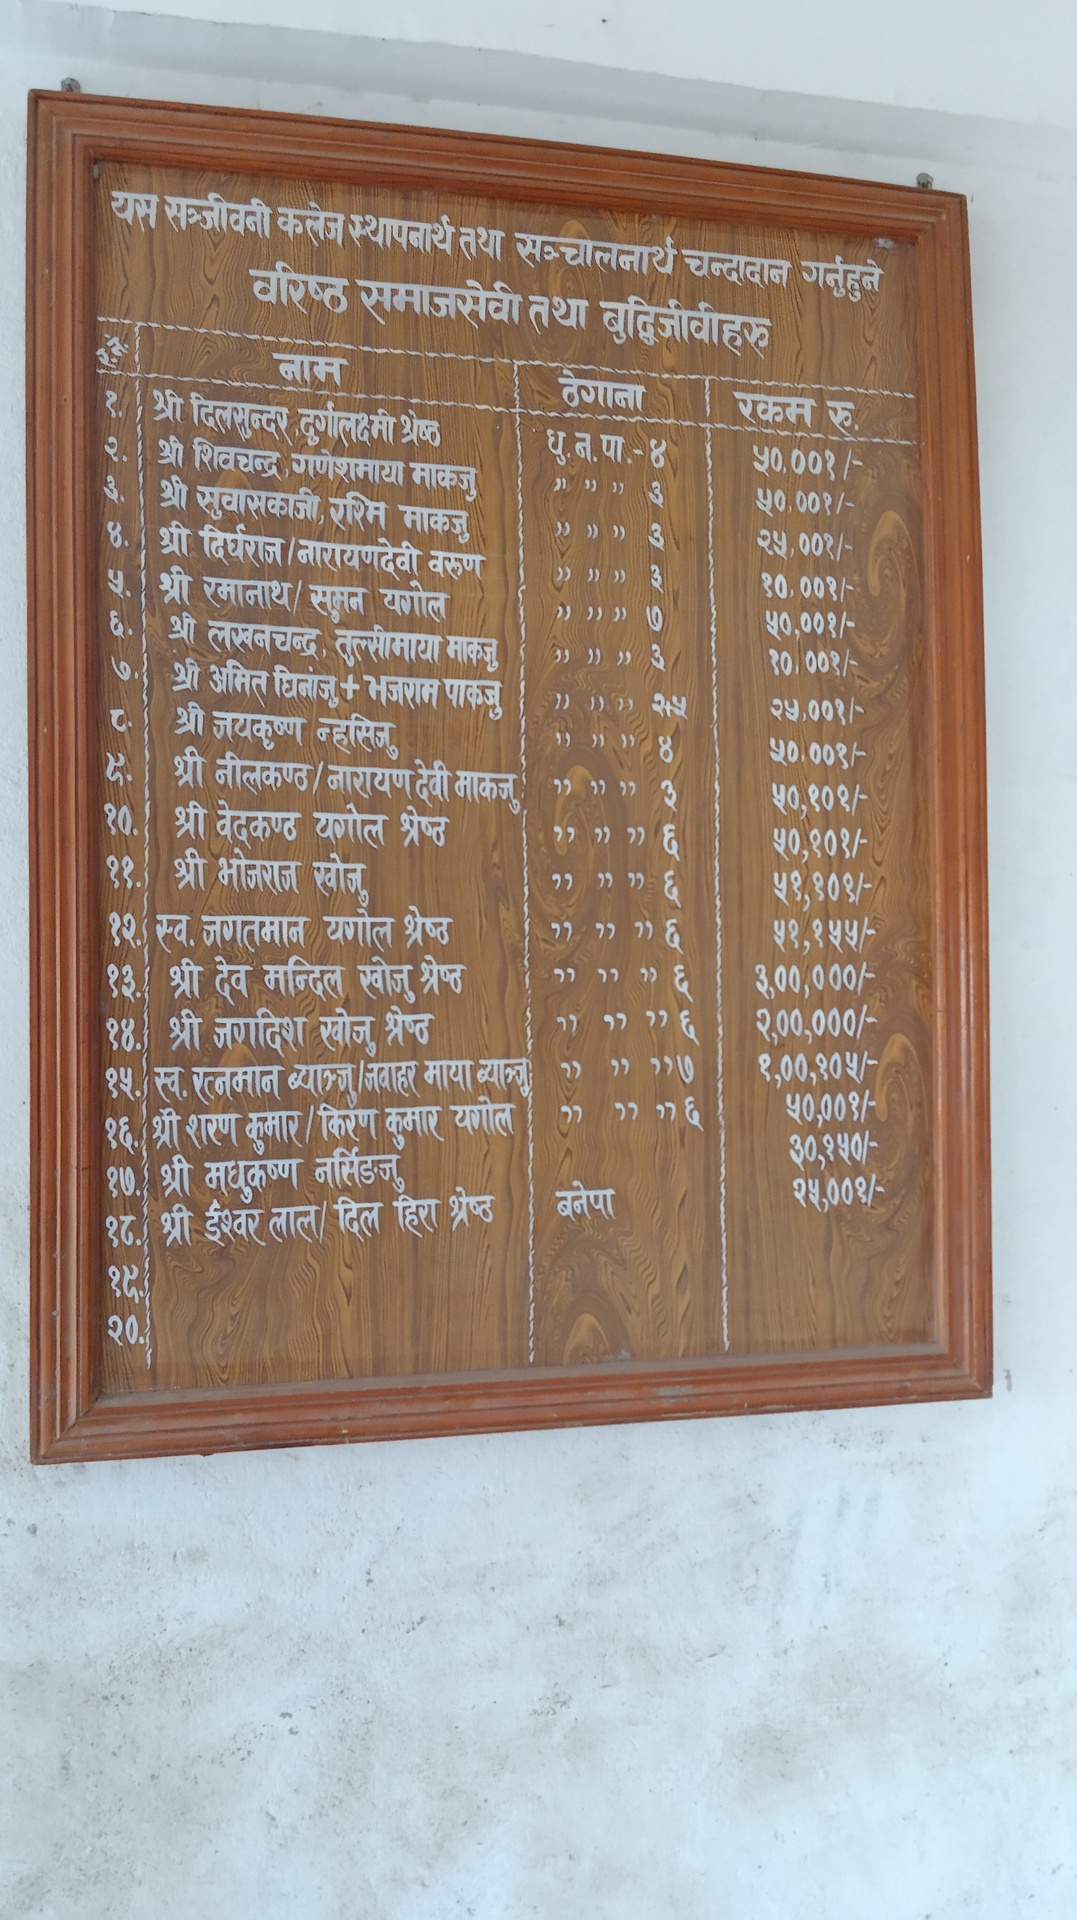 यस सञ्जीवनी कलेज स्थापनार्थ तथा सञ्चालनार्थ चन्दादान गर्नुहुने
वरिष्ठ समाजसेवी तथा बुद्धिजीवीहरु
नाम ठेगाना रकम रु.
१. श्री दिलसुन्दर, दुर्गालक्ष्मी श्रेष्ठ धु.न.पा.-४ ५०,००१/-
२. श्री शिवचन्द्र, गणेशमाया माकजु " " " ३ ५०,००१/-
३. श्री सुवासकाजी, रश्मि माकजु " " " ३ २५,००१/-
४. श्री दिर्घराज/नारायणदेवी वरुण " " " ३ १०,००१/-
५. श्री रमानाथ/ सुमन यगोल " " " ७ ५०,००१/-
६. श्री लखनचन्द्र, तुल्सीमाया माकजु " " " ३ १०,००१/-
७. श्री अमित घिनांजु + भजराम पाकजु " " " २५ २५,००१/-
८. श्री जयकृष्ण न्हसिजु " " " ४ ५०,००१/-
९. श्री नीलकण्ठ/नारायण देवी माकजु " " " ३ ५०,१०१/-
१०. श्री वेदकण्ठ यगोल श्रेष्ठ " " " ६ ५०,१०१/-
११. श्री भोजराज खोजु " " " ६ ५१,१०१/-
१२. स्व. जगतमान यगोल श्रेष्ठ " " " ६ ५१,१५५/-
१३. श्री देव मन्दिल खोजु श्रेष्ठ " " " ६ ३,००,०००/-
१४. श्री जगदिश खोजु श्रेष्ठ " " " ६ २,००,०००/-
१५. स्व. रत्नमान ब्याञ्जु/जवाहर माया ब्याञ्जु " " " ७ १,००,१०५/-
१६. श्री शरण कुमार/किरण कुमार यगोल " " " ६ ५०,००१/-
१७. श्री मधुकृष्ण नर्सिङजु ३०,१५०/-
१८. श्री ईश्वर लाल/ दिल हिरा श्रेष्ठ बनेपा २५,००१/-
१९.
२०.